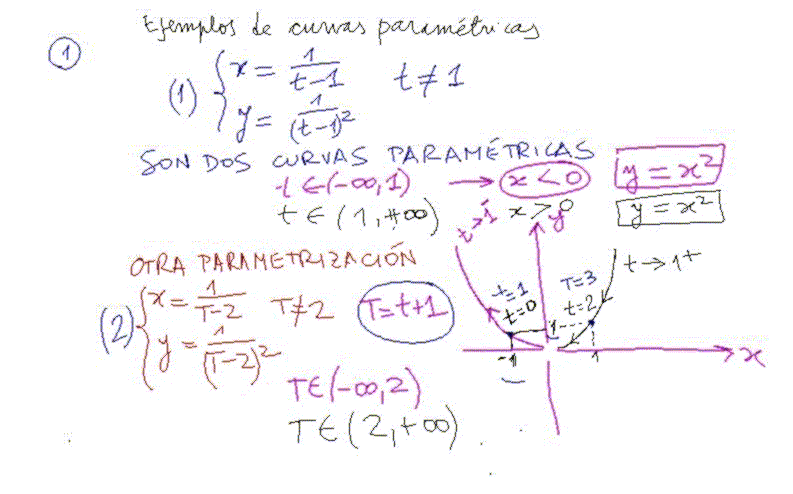 Ejemplos de curvas paramétricas
1
(1) { x = 1/(t-1) t ≠ 1
y = 1/(t-1)²
SON DOS CURVAS PARAMÉTRICAS
t ∈ (-∞, 1) → x < 0 y = x²
t ∈ (1, +∞) x > 0 y = x²
OTRA PARAMETRIZACIÓN
(2) { x = 1/(T-2) T ≠ 2 T = t+1
y = 1/(T-2)²
T ∈ (-∞, 2)
T ∈ (2, +∞)
y
t → 1⁻
t → 1⁺
t = 1
t = 0
T = 3
t = 2
1
-1
1
x